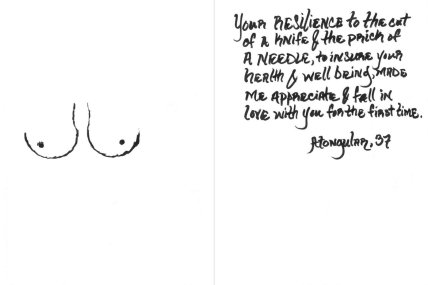 Your RESILIENCE to the cut
of a knife & the prick of
A NEEDLE, to insure your
health & well being, MADE
ME APPRECIATE & fall in
love with you for the first time.
37